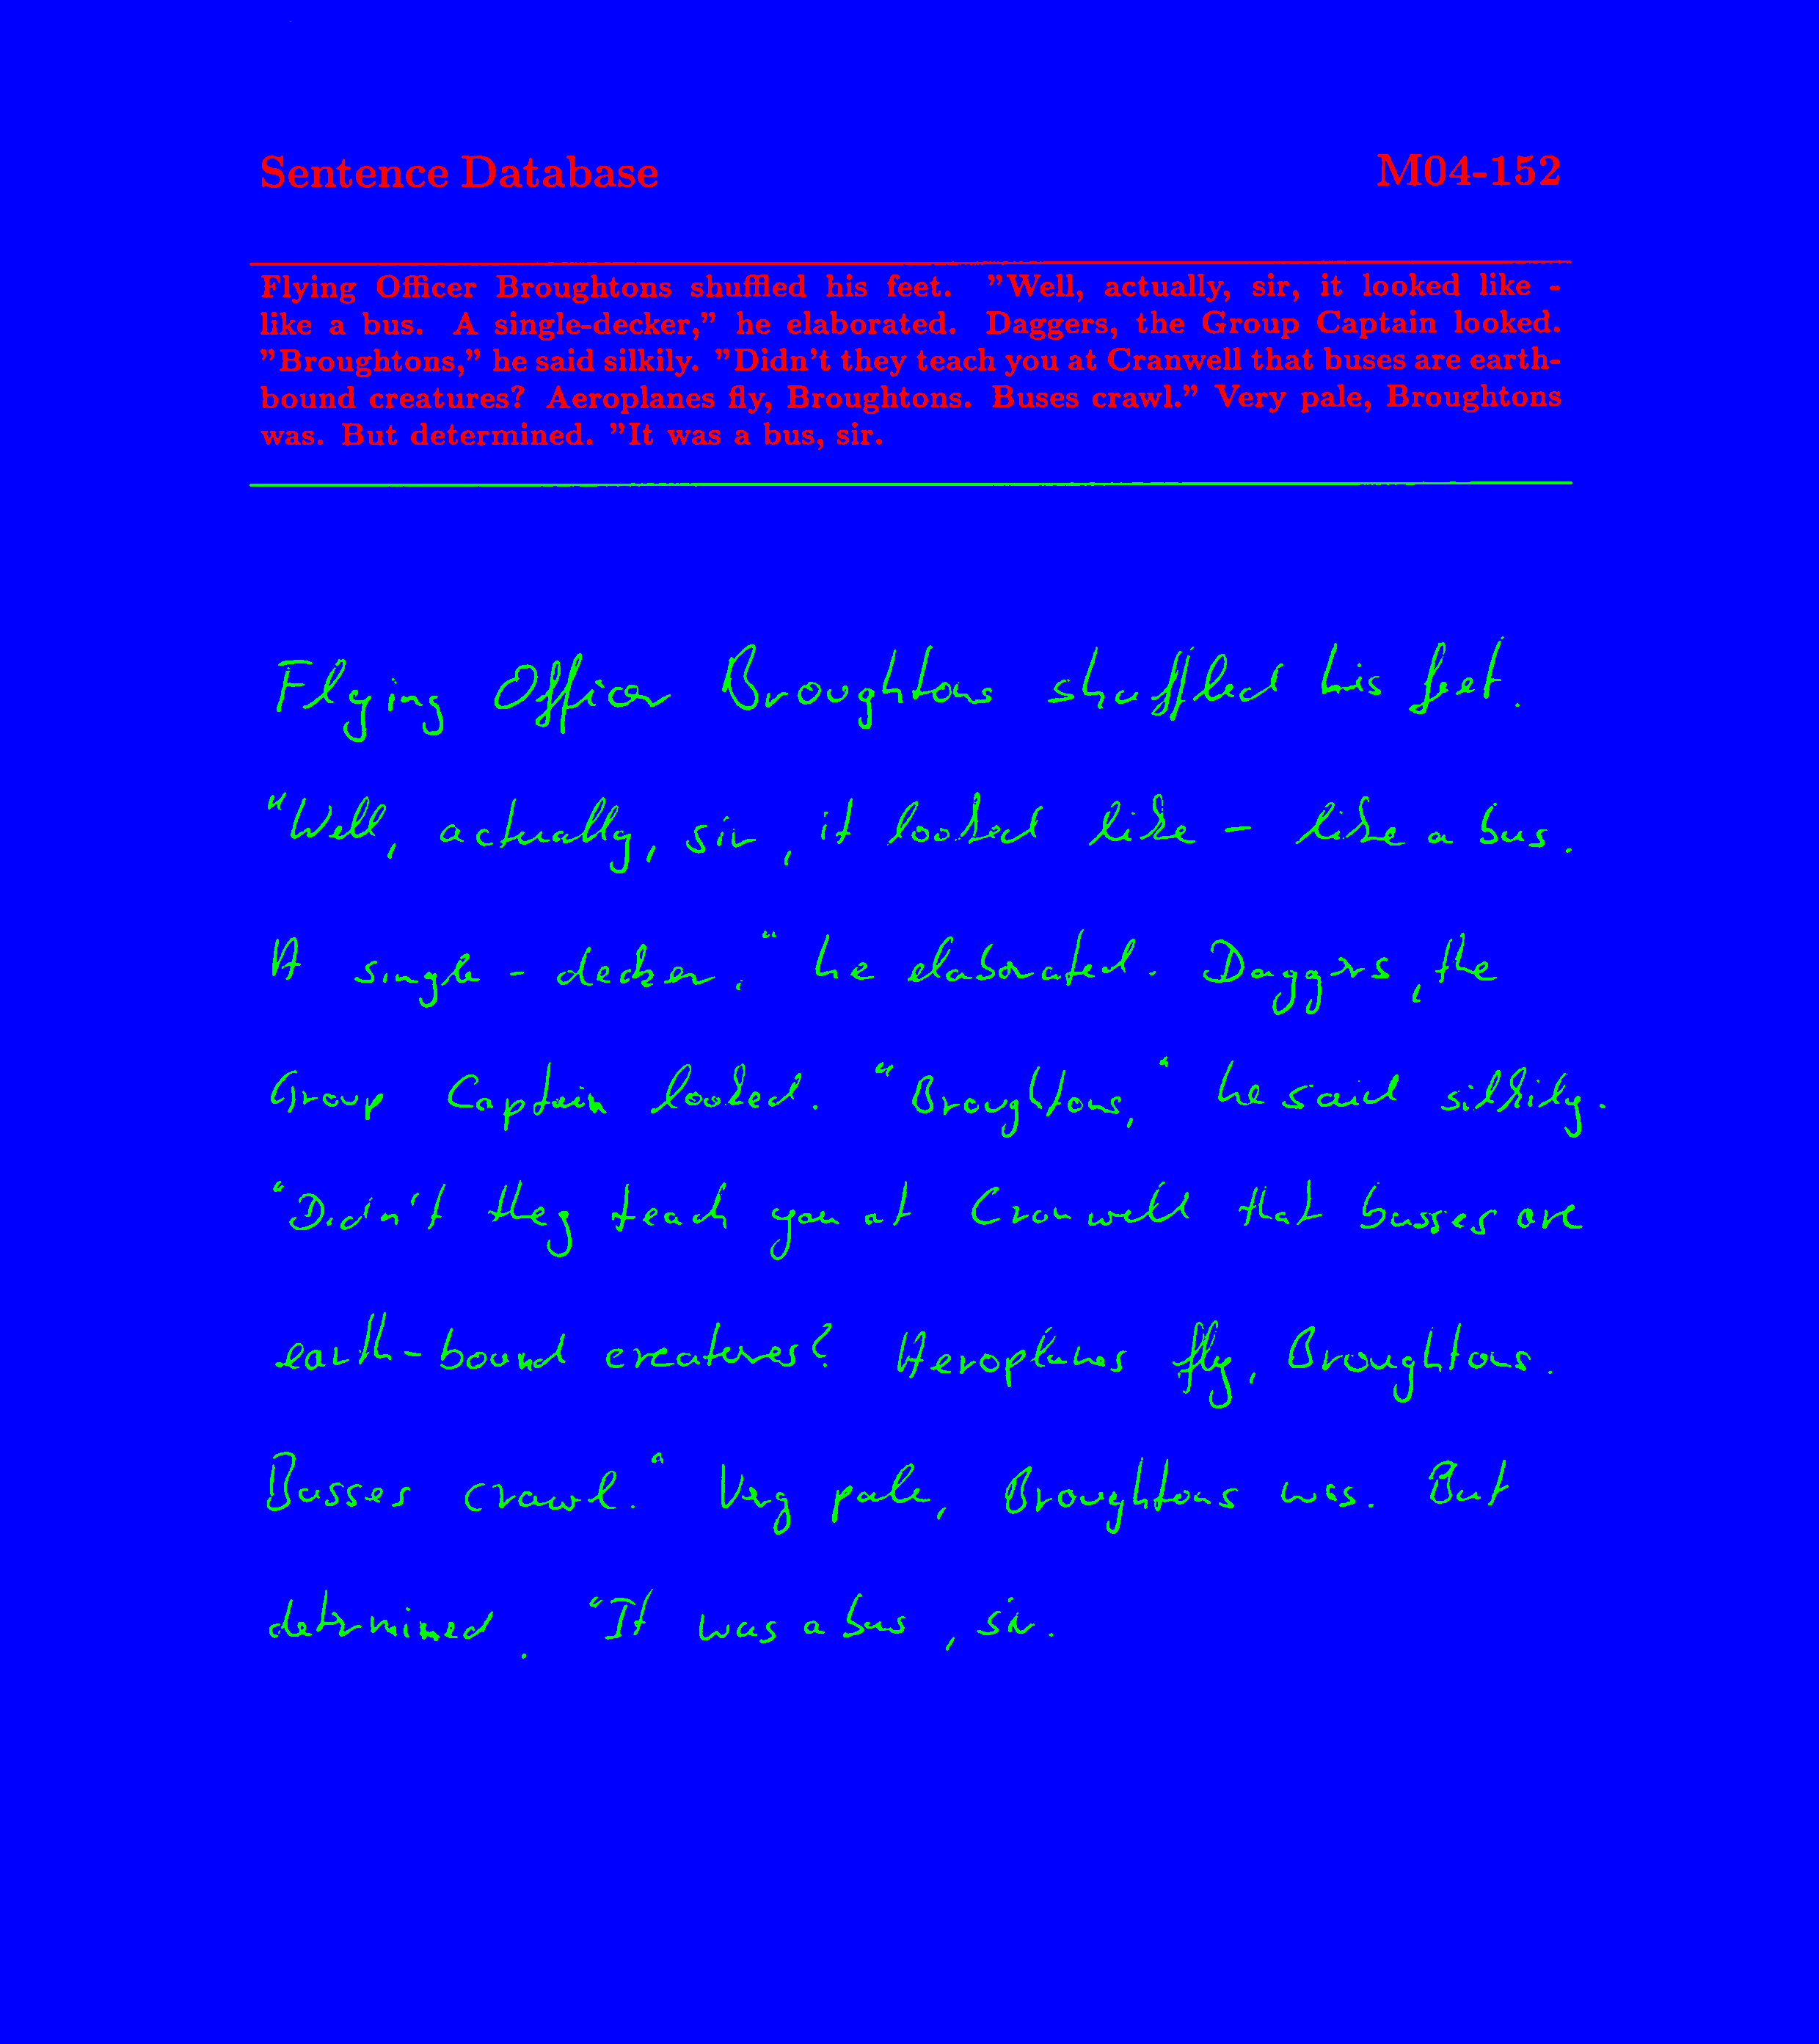 Sentence Database M04-152
Flying Officer Broughtons shuffled his feet. "Well, actually, sir, it looked like -
like a bus. A single-decker," he elaborated. Daggers, the Group Captain looked.
"Broughtons," he said silkily. "Didn't they teach you at Cranwell that buses are earth-
bound creatures? Aeroplanes fly, Broughtons. Buses crawl." Very pale, Broughtons
was. But determined. "It was a bus, sir.
Flying Officer Broughtons shuffled his feet.
"Well, actually, sir, it looked like - like a bus.
A single-decker," he elaborated. Daggers, the
Group Captain looked. "Broughtons," he said silkily.
"Didn't they teach you at Cranwell that busses are
earth-bound creatures? Aeroplanes fly, Broughtons.
Busses crawl." Very pale, Broughtons was. But
determined. "It was a bus, sir.